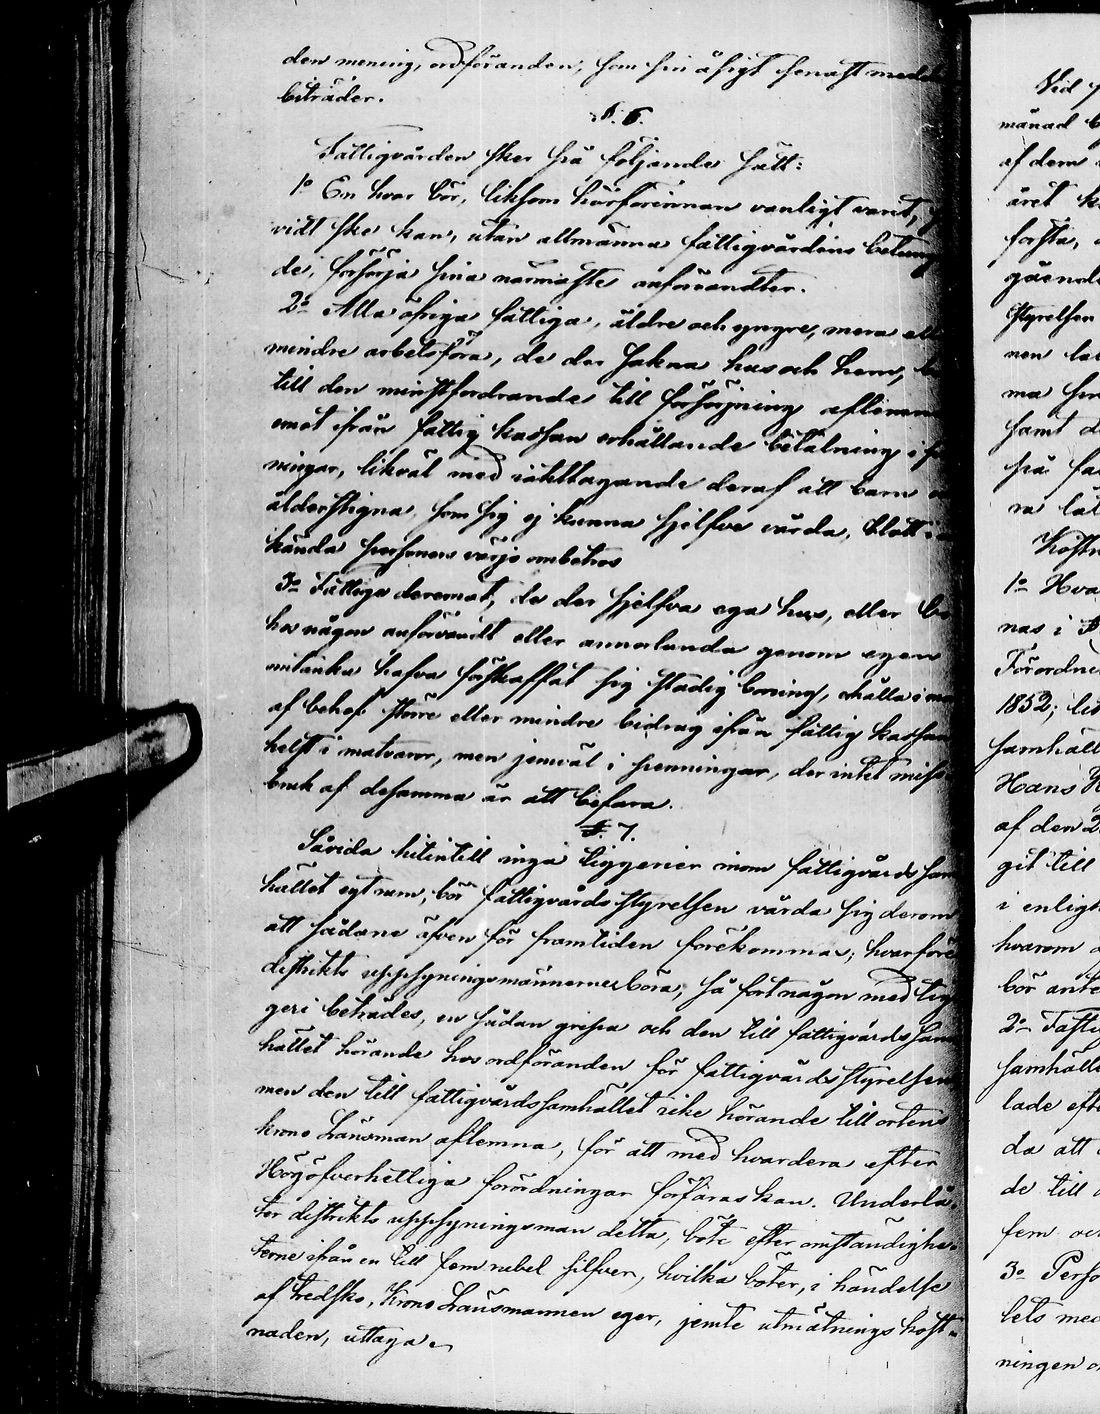 den mening, ordföranden, som sin åsigt senast med
biträder.
§. 6.
Fattigvården sker på följande sätt:
1o En hvar bör, liksom härförinnan vanligt varit,
vidt ske kan, utan allmänna fattigvårdens betung
de, försörja sina närmaste anförvandter.
2o Alla öfriga fattiga, äldre och yngre, mera ell
mindre arbetsföra, de der sakna hus och hem,
till den minstfordrande till försörjning aflemn
emot ifrån fattig kassan erhållande betalning i p
ningar, likväl med iakttagande deraf att barn
ålderstigna, som sig ej kunna sjelfva vårda, blott i
kända personers värjo ombetros
3o Fattiga deremot, de der sjelfva ega hus, eller
hos någon anförvandt eller annorlunda genom egen
omtanka hafva förskaffat sig stadig boning, erhålla i
af behof större eller mindre bidrag ifrån fattig kassan
helst i matvaror, men jemväl i penningar, der intet miss-
bruk af desamma är att befara.
§. 7.
Såvida hitintill inga tiggerier inom fattigvårds sam
hället egt rum, bör fattigvårds styrelsen vårda sig derom
att sådane äfven för framtiden förekommas; hvarföre
distrikts uppsyningsmännerne böra, så fort någon med tig
geri beträdes, en sådan gripa och den till fattigvårds sam
hället hörande hos ordföranden för fattigvårds styrelsen
men den till fattigvårdssamhället icke hörande till ortens
krono Länsman aflemna, för att med hvardera efter
Högöfverhetliga förordningar förfaras kan. Underlå-
ter distrikts uppsyningsman detta, böte efter omständighe-
terne ifrån en till fem rubel silfver, hvilka böter, i händelse
af tredsko, Krono Länsmannen eger, jemte utmätnings kost-
naden, uttaga.
Vid
månad
af dem
året
första,
gående
Styrelsen
nen
ma
samt
på
ra
Kost
1o Hva
nas i
Förordne
1852;
samhäll
Hans
af den 2
git till
i enligh
hvarom
bör ant
2o Fasti
samhälle
lade efte
da att
de till
fem oc
3o Perso
lets med
ningen